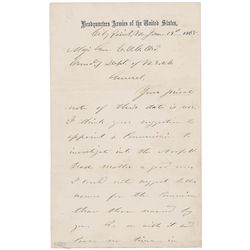 Headquarters Armies of the United States,
City Point, Va. Jan. 13th 1865
Maj. Gen. E.O.C. Ord
Comd'g Dept of Va & NC
General,
Your private
note of this date is rec'd.
I think your suggestion to
appoint a Commission to
investigate into the Norfolk
trade matter a good one.
I could not suggest better
names for the Commission
than those named by
you. Go on with it and